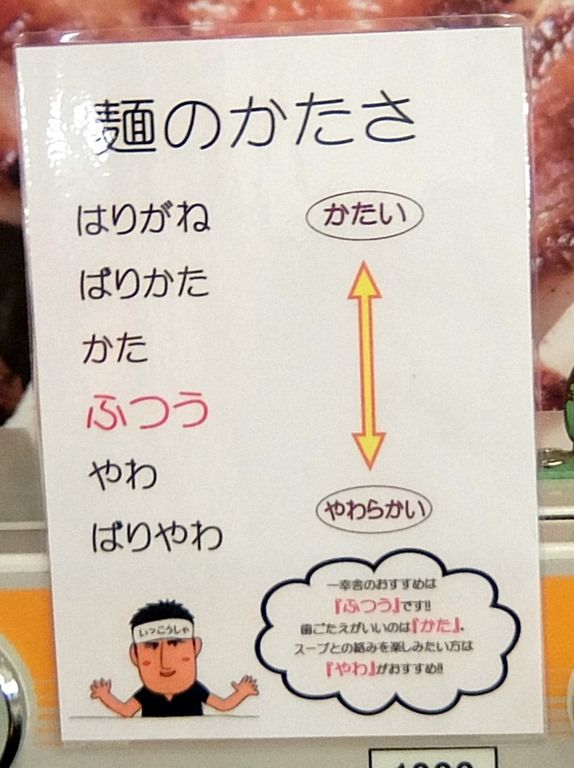 麺のかたさ
はりがね
ばりかた
かた
ふつう
やわ
ばりやわ
かたい
やわらかい
一幸舎のおすすめは
『ふつう』です!!
歯ごたえがいいのは『かた』、
スープとの絡みを楽しみたい方は
『やわ』がおすすめ!!
いっこうしゃ